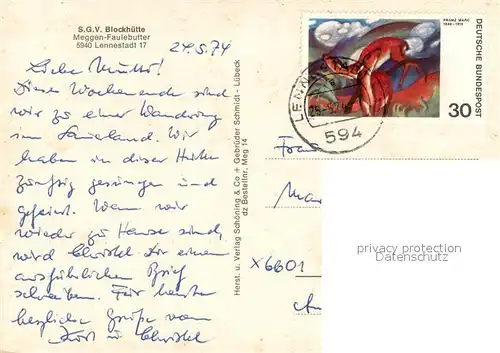 S.G.V. Blockhütte
Meggen-Faulebutter
5940 Lennestadt 17
24.5.74
Liebe Mutti!
Dieses Wochenende sind
wir zu einer Wanderung
im Sauerland. Wir
haben in dieser Hütte
zünftig gesungen und
gefeiert. Wenn wir
wieder zu Hause sind,
wird Christel Dir einen
ausführlichen Brief
schreiben. Für heute
herzliche Grüße von
Kurt u. Christel
Herst. u. Verlag Schöning & Co + Gebrüder Schmidt - Lübeck
dz Bestellnr. Meg 14
FRANZ MARC
1880-1916
DEUTSCHE BUNDESPOST
30
LENNE
25.-5.74
594
Frau
X6601
privacy protection
Datenschutz